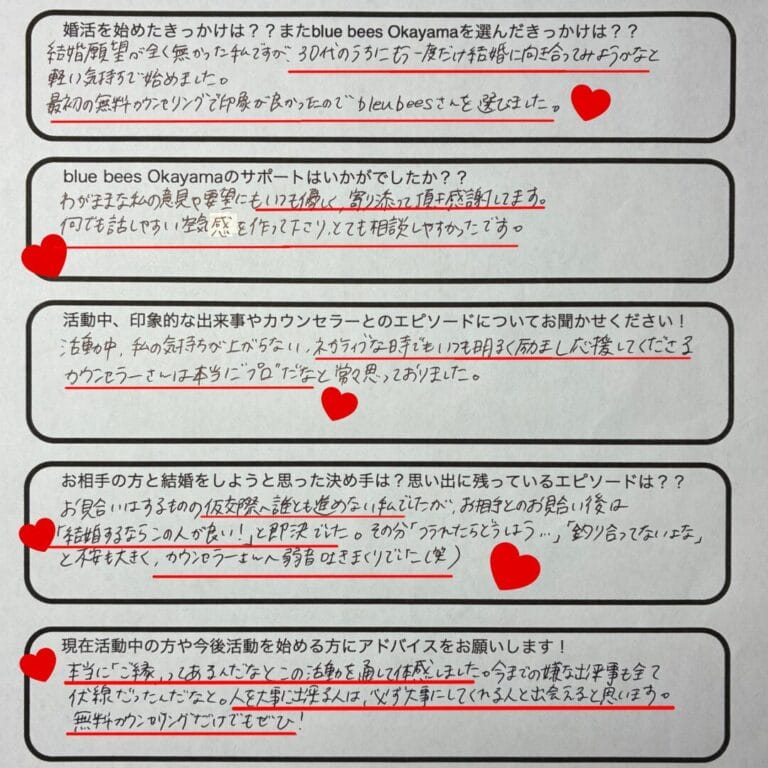 婚活を始めたきっかけは？？またblue bees Okayamaを選んだきっかけは？？
結婚願望が全く無かった私ですが、30代のうちにもう一度だけ結婚に向き合ってみようかなと
軽い気持ちで始めました。
最初の無料カウンセリングで印象が良かったのでbleu beesさんを選びました。
blue bees Okayamaのサポートはいかがでしたか？？
わがままな私の意見や要望にもいつも優しく、寄り添って頂き感謝してます。
何でも話しやすい空気感を作って下さり、とても相談しやすかったです。
活動中、印象的な出来事やカウンセラーとのエピソードについてお聞かせください！
活動中、私の気持ちが上がらない、ネガティブな日時でもいつも明るく励まし応援してくださる
カウンセラーさんは本当に"プロ"だなと常々思っておりました。
お相手の方と結婚をしようと思った決め手は？思い出に残っているエピソードは？？
お見合いはするものの仮交際へ誰とも進めない私でしたが、お相手とのお見合い後は
「結婚するならこの人が良い！」と即決でした。その分「フラれたらどうしよう…」「釣り合ってないよな」
と不安も大きく、カウンセラーさんへ弱音吐きまくりでした（笑）
現在活動中の方や今後活動を始める方にアドバイスをお願いします！
本当に「ご縁」ってあるんだなとこの活動を通して体感しました。今までの嫌な出来事も全て
伏線だったんだなと。人を大事に出来る人は、必ず大事にしてくれる人と出会えると思います。
無料カウンセリングだけでもぜひ！